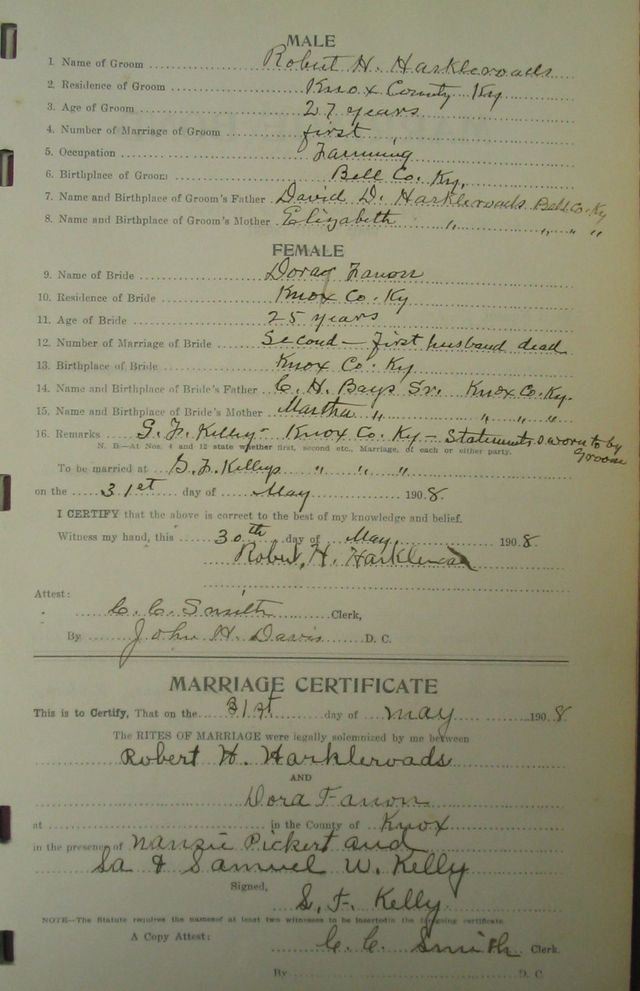 MALE
1. Name of Groom Robert H. Harkleroads
2. Residence of Groom Knox County Ky
3. Age of Groom 27 years
4. Number of Marriage of Groom first
5. Occupation Farming
6. Birthplace of Groom Bell Co. Ky.
7. Name and Birthplace of Groom's Father David D. Harkleroads Bell Co. Ky
8. Name and Birthplace of Groom's Mother Elizabeth " " " "
FEMALE
9. Name of Bride Dora Fanon
10. Residence of Bride Knox Co. Ky
11. Age of Bride 25 years
12. Number of Marriage of Bride Second – first husband dead
13. Birthplace of Bride Knox Co. Ky
14. Name and Birthplace of Bride's Father C. H. Bays Sr. Knox Co. Ky.
15. Name and Birthplace of Bride's Mother Martha " " " "
16. Remarks G. F. Kelley – Knox Co. Ky – Statements sworn to by Groom
N. B.—At Nos. 4 and 12 state whether first, second etc., Marriage, of each or either party.
To be married at G. F. Kellys " " "
on the 31st day of May 1908.
I CERTIFY that the above is correct to the best of my knowledge and belief.
Witness my hand, this 30th day of May, 1908.
Robert, H. Harkleroad
Attest:
C. C. Smith Clerk,
By John H. Davis D. C.
MARRIAGE CERTIFICATE
This is to Certify, That on the 31st day of May 1908
The RITES OF MARRIAGE were legally solemnized by me between
Robert H. Harkleroads
AND
Dora Fanon
at in the County of Knox
in the presence of Nanzie Pickert and
Sa & Samuel W. Kelly
Signed, S. F. Kelly
NOTE—The Statute requires the names of at least two witnesses to be inserted in the foregoing certificate.
A Copy Attest: C. C. Smith Clerk.
By D. C.